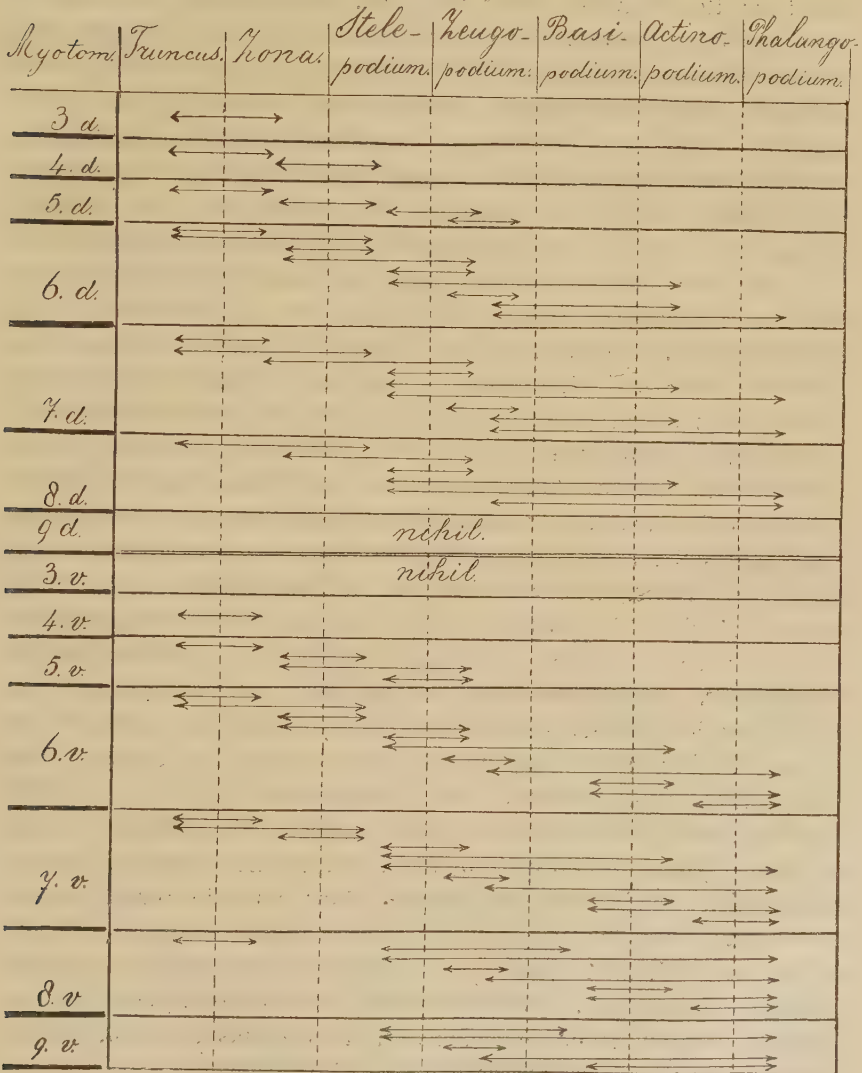 Myotom. Truncus. Zona. Stele-podium. Zeugo-podium. Basi-podium. Actino-podium. Phalango-podium.
3 d.
4. d.
5. d.
6. d.
7. d.
8. d.
9 d. nihil.
3. v. nihil.
4. v.
5. v.
6. v.
7. v.
8. v
9. v.